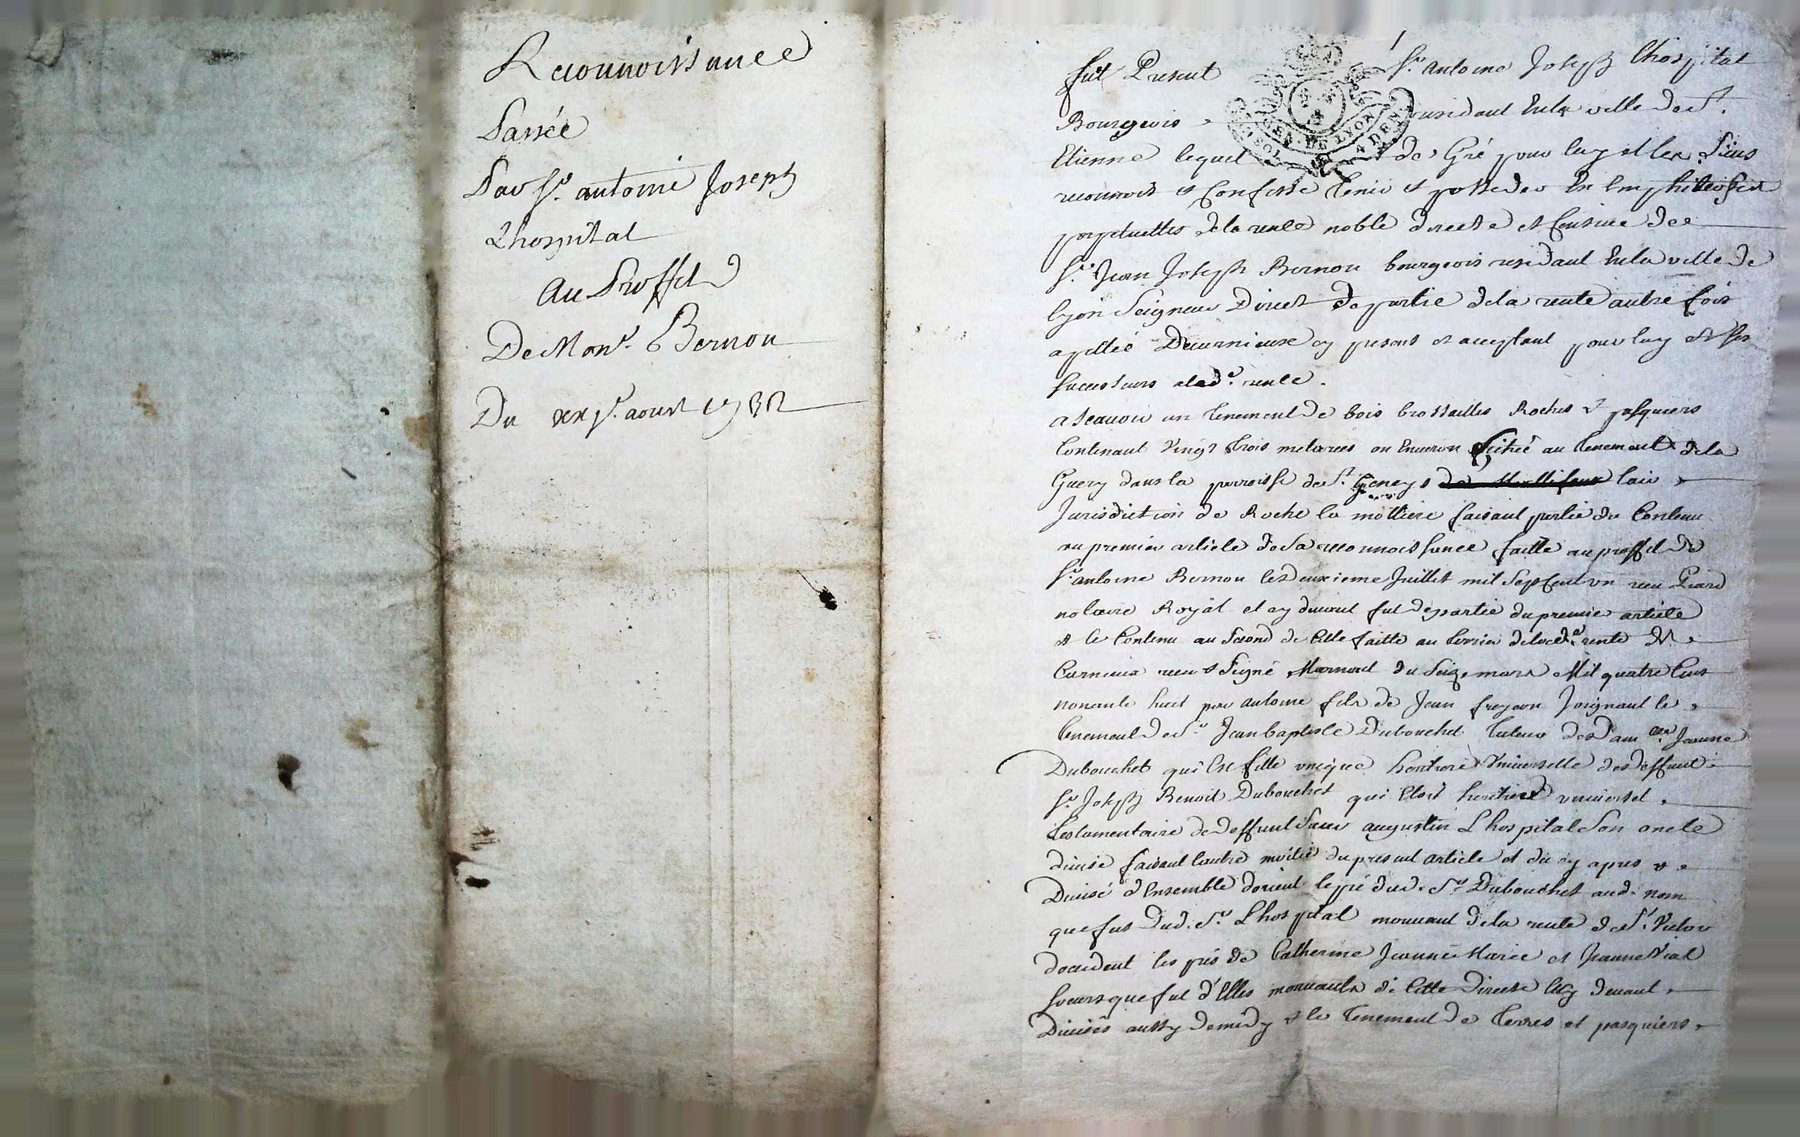 Reconnoissance
Passée
Par Sr. antoine Joseph
Lhospital
Au Proffit
De Monsr. Bernon
Du aoust 1732
fut Present Sr. Antoine Joseph Lhospital
Bourgeois residant En la ville de St.
GEN. DE LYON
Etienne lequel de Gré pour luy et les Siens
reconnoit et Confesse tenir et posseder En Emphiteose
perpetuelles de la rente noble directe et Censive de
Sr. Jean Joseph Bernon bourgeois residant En la ville de
lyon Seigneur Direct de partie de la rente autre fois
apellée cy present et acceptant pour luy et Ses
Successeurs a lad. rente.
a Scavoir un tenement de bois brossailles Roches et pasquiers
Contenant Vingt trois meterées ou Environ Scitué au tenement de la
Guery dans la parroisse de St. Geneys lair
Jurisdiction de Roche la moliere faisant partie du Contenu
au premier article de la reconnoissance faitte au proffit de
Sr. antoine Bernon le deuxieme Juillet mil Sept Cent un receu
notaire Royal et cy devant fut de partie du premier article
et le Contenu au Second de Celle faitte au terrier de lad. rente de
receu et Signé du Seize mars Mil quatre Cent
nonante huit par antoine fils de Jean Joignant le
tenement de Sr. Jean baptiste Dubouchet tuteur de Jeanne
Dubouchet qui Est fille unique heritiere Universelle de deffunt
Sr. Joseph Benoit Dubouchet qui Etoit heritier universel
testamentaire de deffunt Sieur augustin Lhospital Son oncle
divisé faisant lautre moitié du present article et dit cy apres et
Divisé d'Ensemble dorient le pré dud. Sr. Dubouchet aud. nom
que fut dud. Sr. Lhospital mouvant de la rente de St. Victor
doccident les prés de Catherine Jeanne Marie et Jeanne Vial
Soeurs que fut d'Elles mouvants de Cette Directe Cy devant
Divisés aussy de midy et le tenement de terres et pasquiers